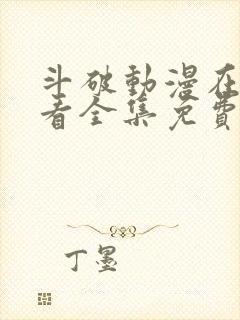 斗破動漫在
看全集免費
丁墨